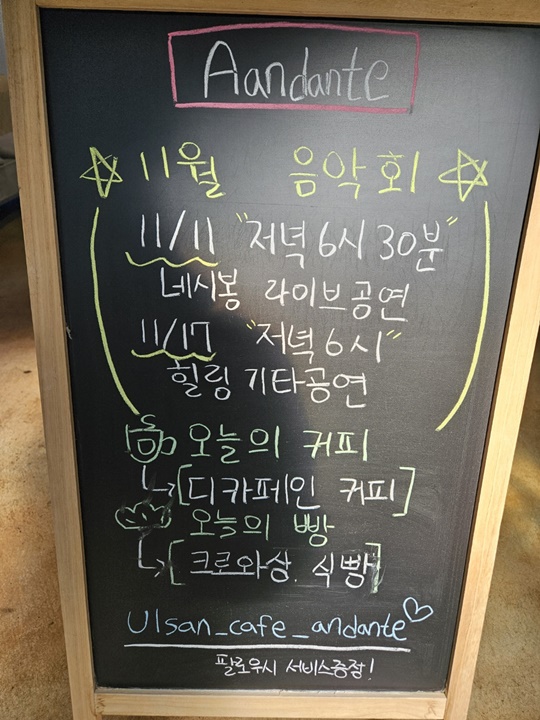 Aandante
☆ 11월 음악회 ☆
11/11 "저녁 6시 30분"
네시봉 라이브공연
11/17 "저녁 6시"
힐링 기타공연
오늘의 커피
[디카페인 커피]
오늘의 빵
[크로와상. 식빵]
Ulsan_cafe_andante♡
팔로우시 서비스증정!